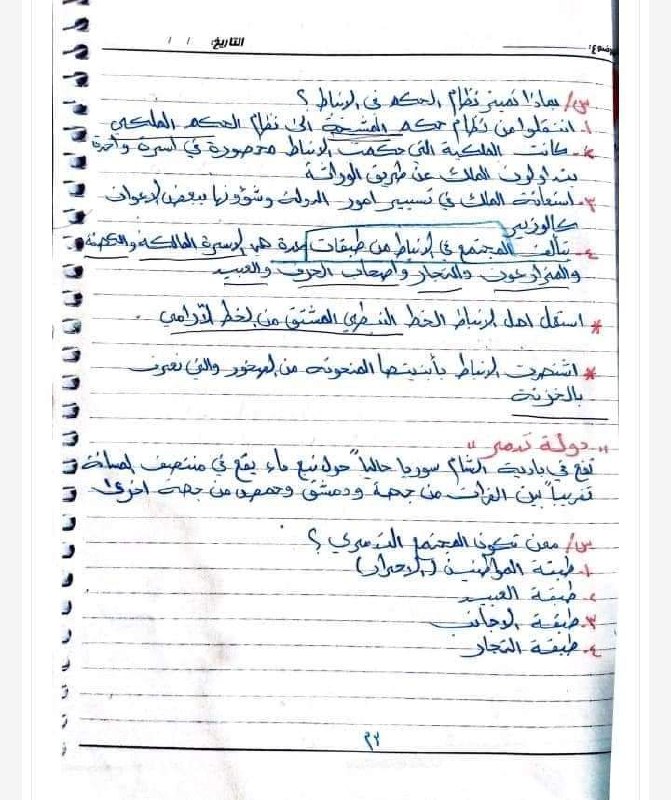 الموضوع: التاريخ: / /
س/ بماذا تميز نظام الحكم في الانباط ؟
١- انتقلوا من نظام حكم المشيخة الى نظام الحكم الملكي
٢- كانت الملكية التي حكمت الانباط محصورة في اسرة واحدة
يتداولون الملك عن طريق الوراثة
٣- استعانة الملك في تسيير امور الدولة وشؤونها ببعض الاعوان
كالوزير
٤- يتألف المجتمع في الانباط من طبقات عدة هي الاسرة المالكة والكهنة
والمزارعون والتجار واصحاب الحرف والعبيد
* استعمل اهل الانباط الخط النبطي المشتق من الخط الآرامي
* اشتهرت الانباط بأبنيتها المنحوتة من الصخور والتي تعرف
بالخزنة
"دولة تدمر"
تقع في بادية الشام سوريا حالياً حول نبع ماء يقع في منتصف المسافة
تقريباً بين الفرات من جهة ودمشق وحمص من جهة اخرى
س/ ممن تكون المجتمع التدمري ؟
١- طبقة المواطنين (الاحرار)
٢- طبقة العبيد
٣- طبقة الاجانب
٤- طبقة التجار
٢٣